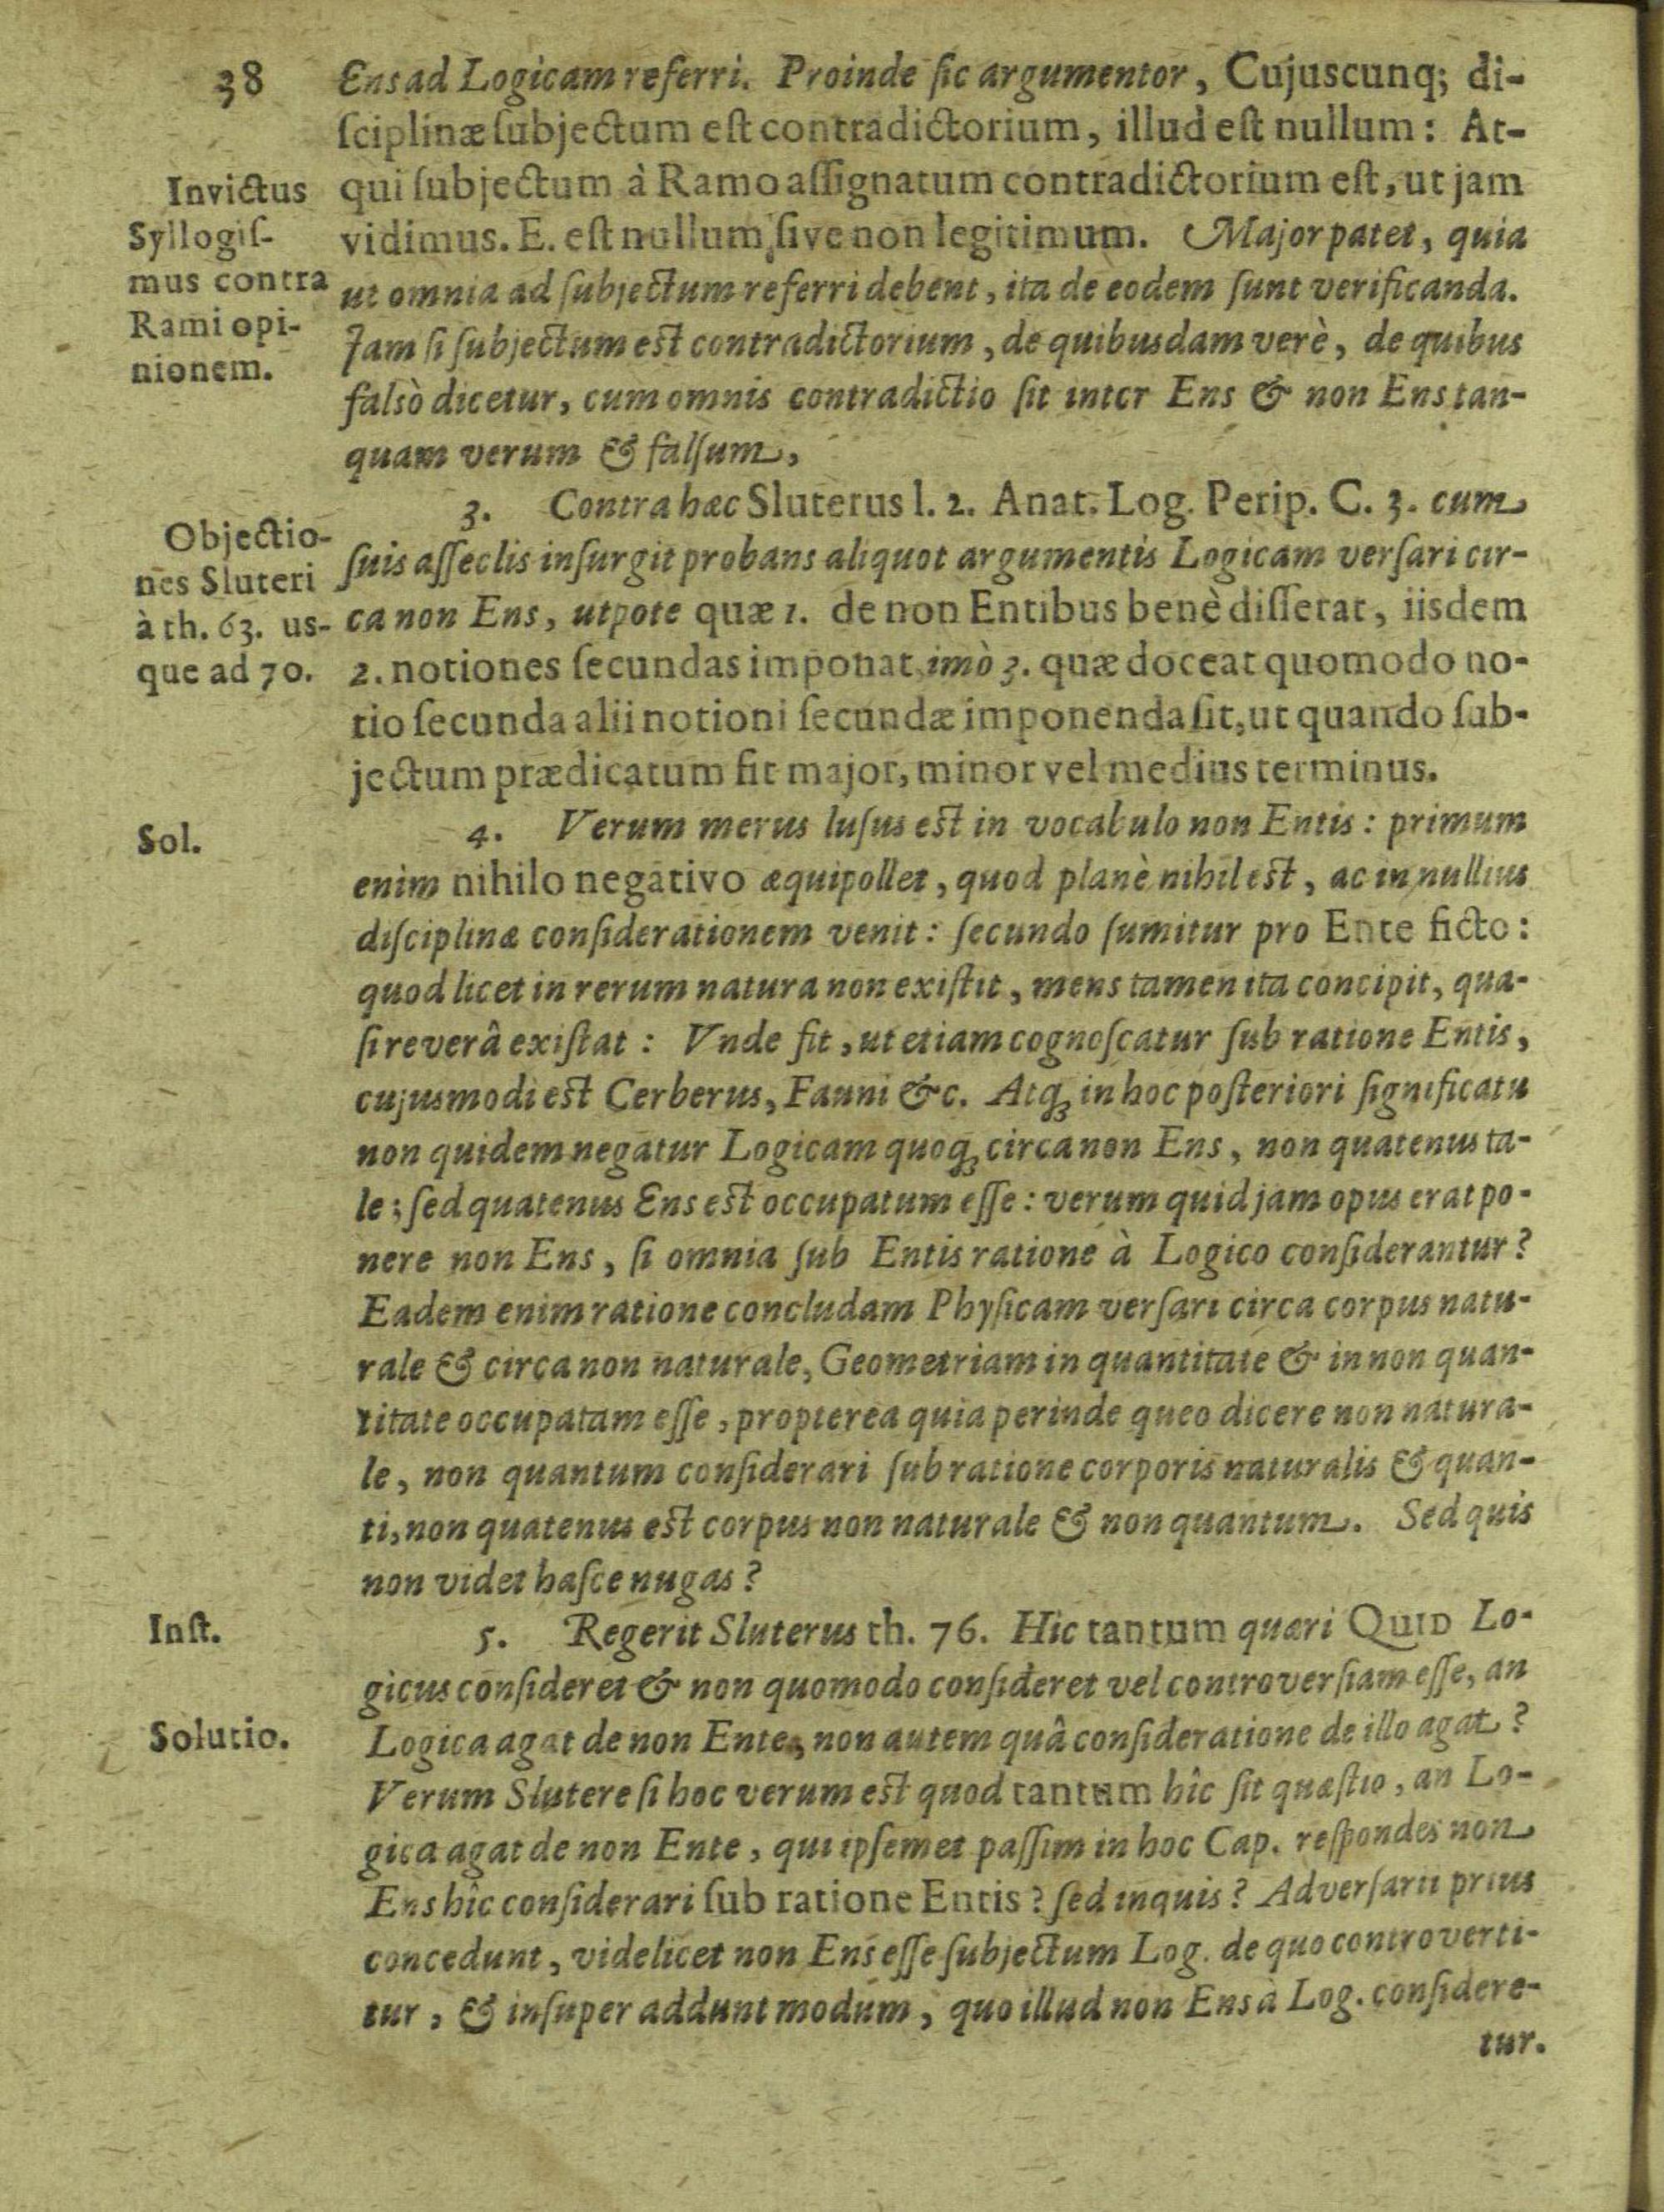 38
Ens ad Logicam referri. Proinde ſic argumentor, Cujuscunq; di-
ſciplinæ ſubjectum eſt contradictorium, illud eſt nullum: At-
qui ſubjectum à Ramo aſſignatum contradictorium eſt, ut jam
vidimus. E. eſt nullum, ſive non legitimum. Major patet, quia
ut omnia ad ſubjectum referri debent, ita de eodem ſunt verificanda.
Jam ſi ſubjectum eſt contradictorium, de quibusdam verè, de quibus
falsò dicetur, cum omnis contradictio ſit inter Ens & non Ens tan-
quam verum & falſum,
Invictus
Syllogiſ-
mus contra
Rami opi-
nionem.
3. Contra hæc Sluterus l. 2. Anat. Log. Perip. C. 3. cum
ſuis aſſeclis inſurgit probans aliquot argumentis Logicam verſari cir-
ca non Ens, utpote quæ 1. de non Entibus benè diſſerat, iisdem
2. notiones ſecundas imponat, imò 3. quæ doceat quomodo no-
tio ſecunda alii notioni ſecundæ imponenda ſit, ut quando ſub-
jectum prædicatum fit major, minor vel medius terminus.
Objectio-
nes Sluteri
à th. 63. us-
que ad 70.
4. Verum merus luſus eſt in vocabulo non Entis: primum
enim nihilo negativo æquipollet, quod planè nihil eſt, ac in nullius
diſciplinæ conſiderationem venit: ſecundo ſumitur pro Ente ficto:
quod licet in rerum natura non exiſtit, mens tamen ita concipit, qua-
ſi reverâ exiſtat: Vnde fit, ut etiam cognoſcatur ſub ratione Entis,
cujusmodi eſt Cerberus, Fauni &c. Atq; in hoc poſteriori ſignificatu
non quidem negatur Logicam quoq; circa non Ens, non quatenus ta-
le; ſed quatenus Ens eſt occupatum eſſe: verum quid jam opus erat po-
nere non Ens, ſi omnia ſub Entis ratione à Logico conſiderantur?
Eadem enim ratione concludam Phyſicam verſari circa corpus natu-
rale & circa non naturale, Geometriam in quantitate & in non quan-
titate occupatam eſſe, propterea quia perinde queo dicere non natura-
le, non quantum conſiderari ſub ratione corporis naturalis & quan-
ti, non quatenus eſt corpus non naturale & non quantum. Sed quis
non videt haſce nugas?
Sol.
5. Regerit Sluterus th. 76. Hic tantum quæri QUID Lo-
gicus conſideret & non quomodo conſideret vel controverſiam eſſe, an
Logica agat de non Ente, non autem quâ conſideratione de illo agat?
Verum Slutere ſi hoc verum eſt quod tantum hîc ſit quæſtio, an Lo-
gica agat de non Ente, qui ipſemet paſſim in hoc Cap. reſpondes non
Ens hîc conſiderari ſub ratione Entis? ſed inquis? Adverſarii prius
concedunt, videlicet non Ens eſſe ſubjectum Log. de quo controverti-
tur, & inſuper addunt modum, quo illud non Ens à Log. conſidere-
tur.
Inſt.
Solutio.